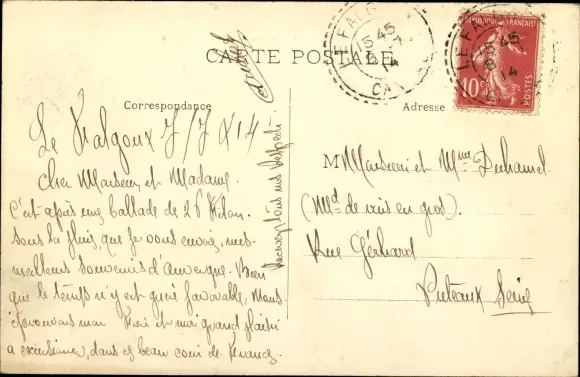 CARTE POSTALE
Correspondance
Adresse
REPUBLIQUE FRANÇAISE
10c
POSTES
LE FALGOUX
15 45
7
14
CA
LE FALGOUX
15 45
8
14
Le Falgoux 7/7 14
Cher Monsieur et Madame.
C'est après une ballade de 25 Kilom.
sous la pluie, que je vous envoie, mes
meilleurs souvenirs d'Auvergne. Bien
que le temps n'y est guère favorable, nous
éprouvons mon et moi grand plaisir
a excursionner, dans ce beau coin de France
Recevez tous nos respects
M Monsieur et Mme Duhamel
(Md de vins en gros).
Rue Gérhard
Puteaux Seine